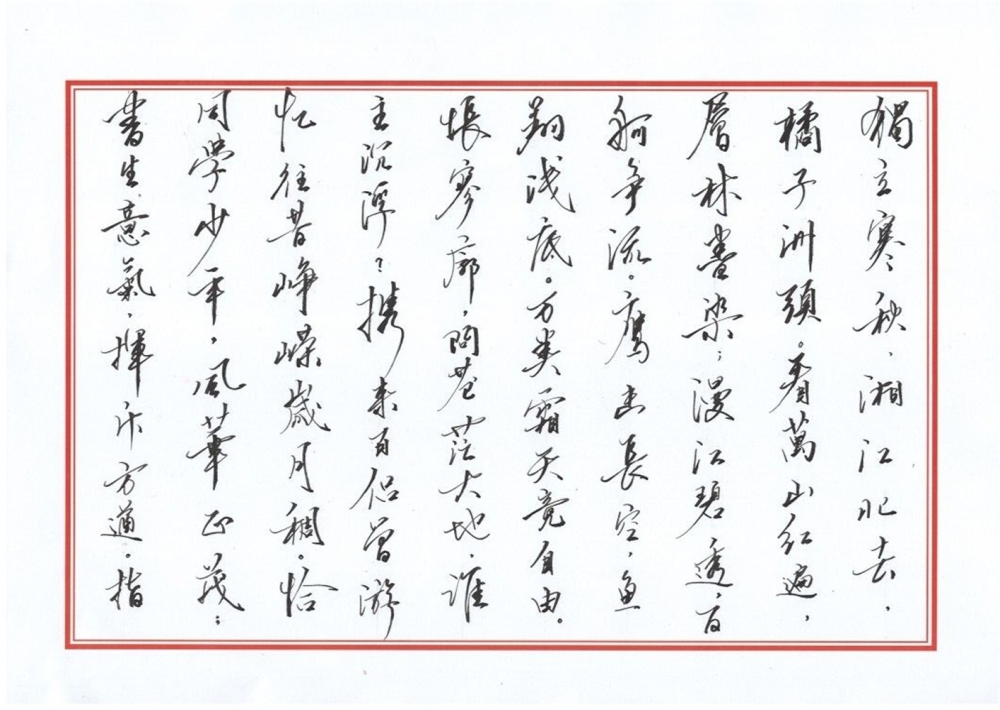 獨立寒秋，湘江北去，
橘子洲頭。看萬山红遍，
層林盡染；漫江碧透，百
舸争流。鹰击長空，魚
翔浅底。万类霜天竞自由。
悵寥廓，問苍茫大地，谁
主沉浮？携来百侣曾游
忆往昔峥嵘歲月稠。恰
同學少年，风華正茂；
書生意氣，揮斥方遒。指